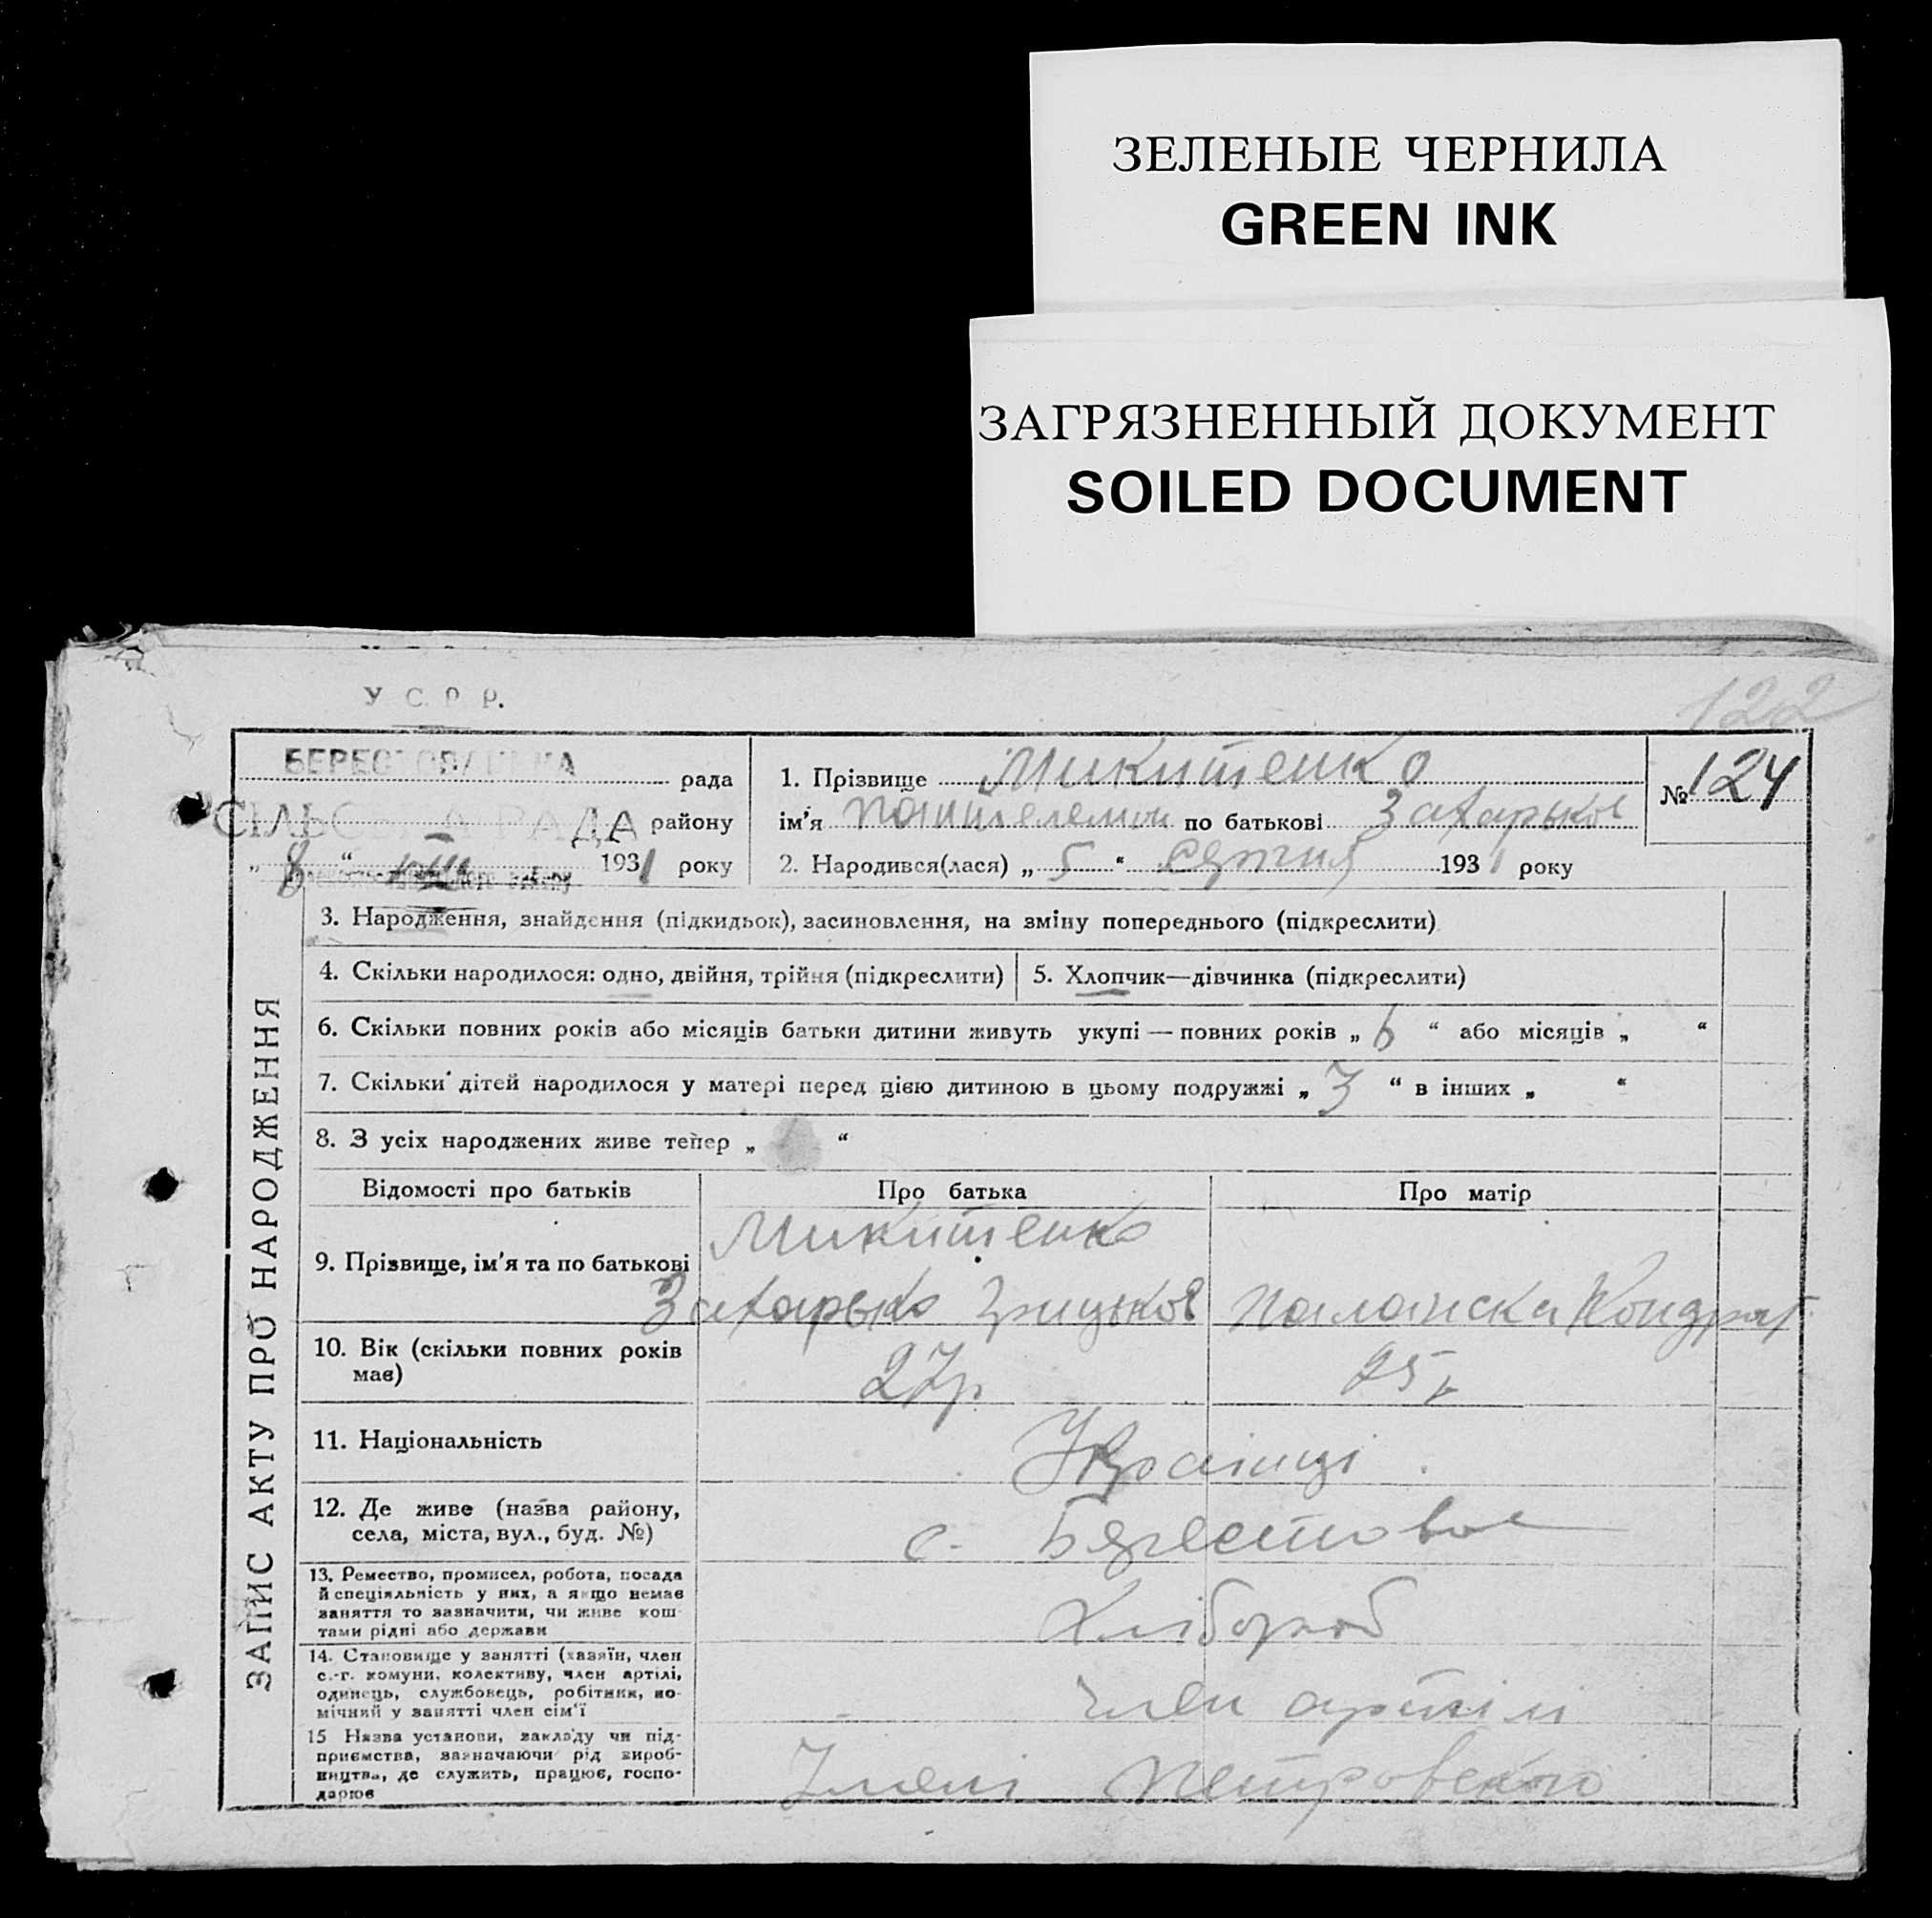 ЗЕЛЕНЫЕ ЧЕРНИЛА
GREEN INK
ЗАГРЯЗНЕННЫЙ ДОКУМЕНТ
SOILED DOCUMENT
У С Р Р.
122
рада
СІЛЬС РАДА району
„ 8 “ 1931 року
1. Прізвище Микитенко
ім'я Пантелемон по батькові Захарьков
2. Народився(лася) „ 5 “ серпня 1931 року
№ 124
ЗАПИС АКТУ ПРО НАРОДЖЕННЯ
3. Народження, знайдення (підкидьок), засиновлення, на зміну попереднього (підкреслити)
4. Скільки народилося: одно, двійня, трійня (підкреслити)
5. Хлопчик—дівчинка (підкреслити)
6. Скільки повних років або місяців батьки дитини живуть укупі — повних років „ 6 “ або місяців „ “
7. Скільки дітей народилося у матері перед цією дитиною в цьому подружжі „ 3 “ в інших „ “
8. З усіх народжених живе тепер „ “
Відомості про батьків
Про батька
Про матір
9. Прізвище, ім'я та по батькові
Микитенко
Захарько Грицьков
Палажка Кондрат
10. Вік (скільки повних років
має)
27р
25р
11. Національність
Українці
12. Де живе (назва району,
села, міста, вул., буд. №)
с. Берестове
13. Ремество, промисел, робота, посада
й спеціяльність у них, а якщо немає
заняття то зазначити, чи живе кош-
тами рідні або держави
Хлібороб
14. Становище у занятті (хазяїн, член
с.-г. комуни, колективу, член артілі,
одинець, службовець, робітник, по-
мічний у занятті член сім'ї
член артілі
15 Назва установи, закладу чи під-
приємства, зазначаючи рід вироб-
ництва, де служить, працює, госпо-
дарює
Імені Петровского